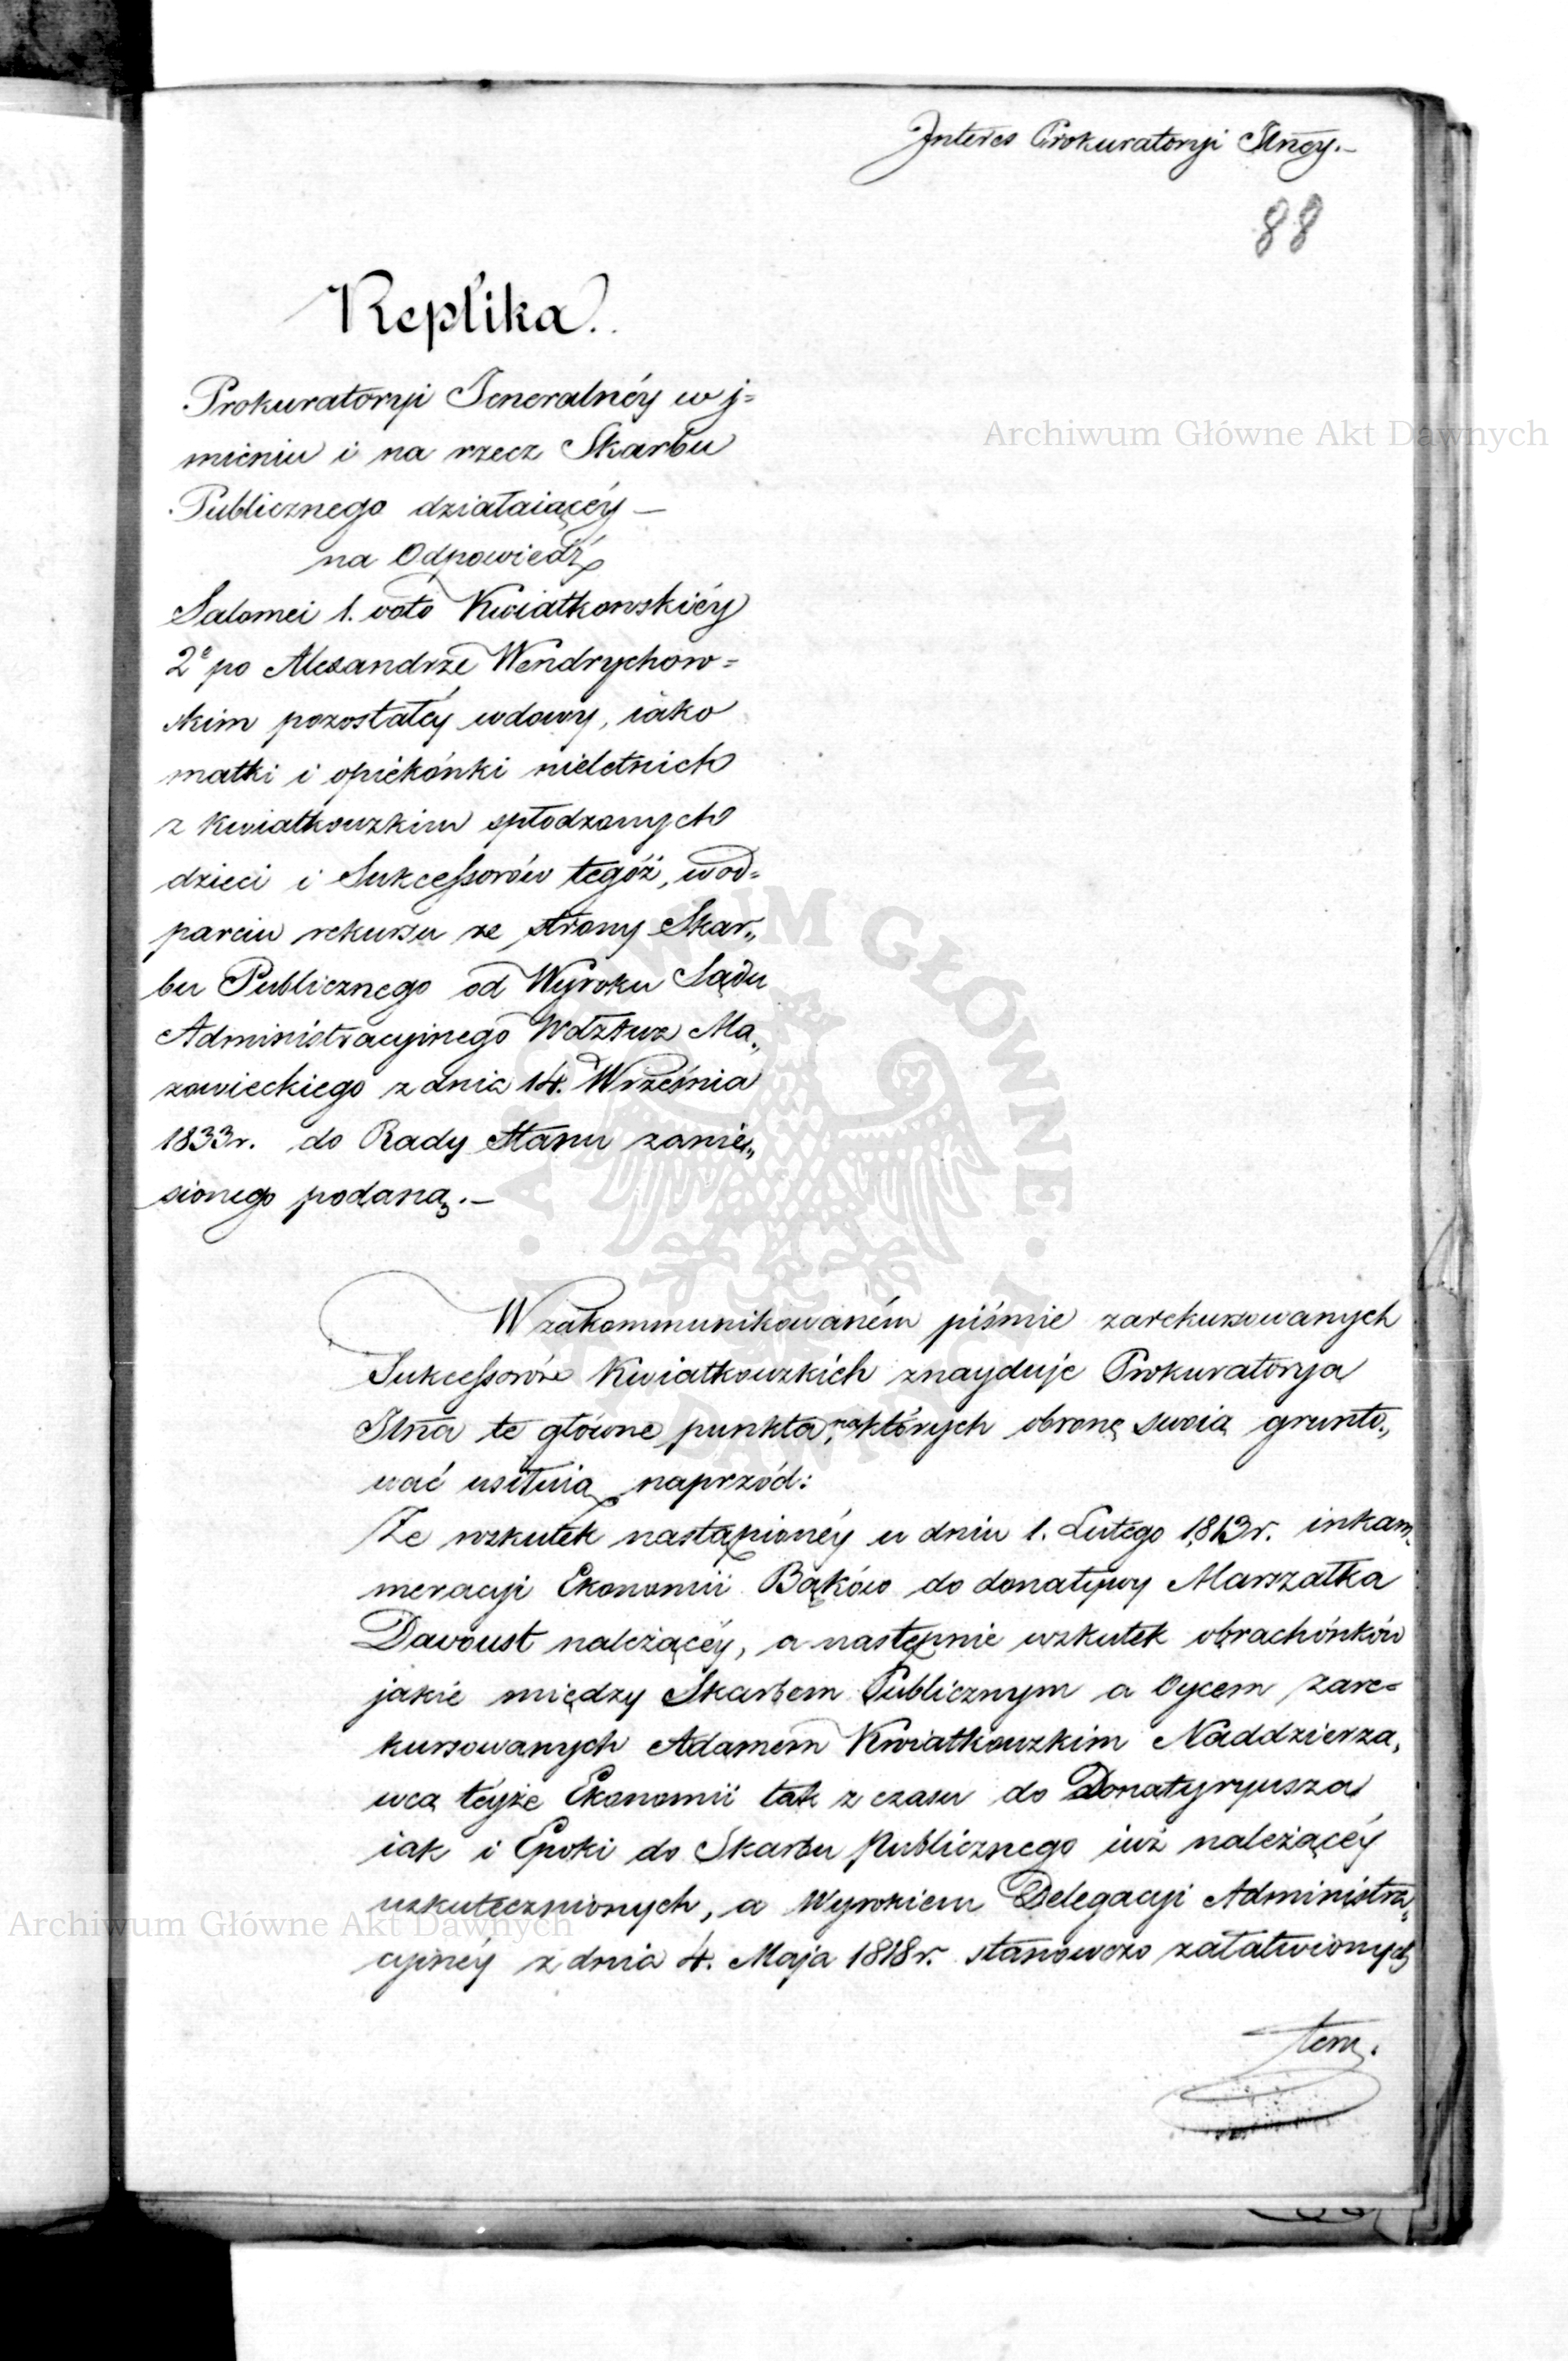 Interes Prokuratoryi Jlnéy.-
88
Replika.
Prokuratoryi Jeneralnéy w j=
mieniu i na rzecz Skarbu
Publicznego działaiącéy —
na Odpowiedź
Salomei 1. voto Kwiatkowskiéy
2º po Alexandrze Wendrychow=
skim pozostałéy wdowy, iako
matki i opiekónki nieletnich
z Kwiatkowskim spłodzonych
dzieci i Sukcessorów tegóż, w od=
parciu rekursu ze strony Skar„
bu Publicznego od Wyroku Sądu
Administracyinego Wdztwa Ma„
zowieckiego z dnia 14. Września
1833r. do Rady Stanu zanie„
sionego podaną.—
W zakommunikowaném piśmie zarekursowanych
Sukcessorów Kwiatkowskich znayduje Prokuratorya
Jlna te główne punkta, na których obronę swoią grunto„
wać usiłuią naprzód:
Że wskutek nastąpionéy w dniu 1. Lutego 1813r. inkam„
meracyi Ekonomii Bąków do donatywy Marszałka
Davoust należącéy, a następnie wskutek obrachónków
jakie między Skarbem Publicznym a Oycem zare=
kursowanych Adamem Kwiatkowskim Naddzierza„
wcą téyże Ekonomii tak z czasu do Donataryusza
iak i Epoki do Skarbu Publicznego iuż należącéy
uskutecznionych, a Wyrokiem Delegacyi Administra„
cyinéy z dnia 4. Maja 1818r. stanowczo załatwionych
tem.
Archiwum Główne Akt Dawnych
Archiwum Główne Akt Dawnych